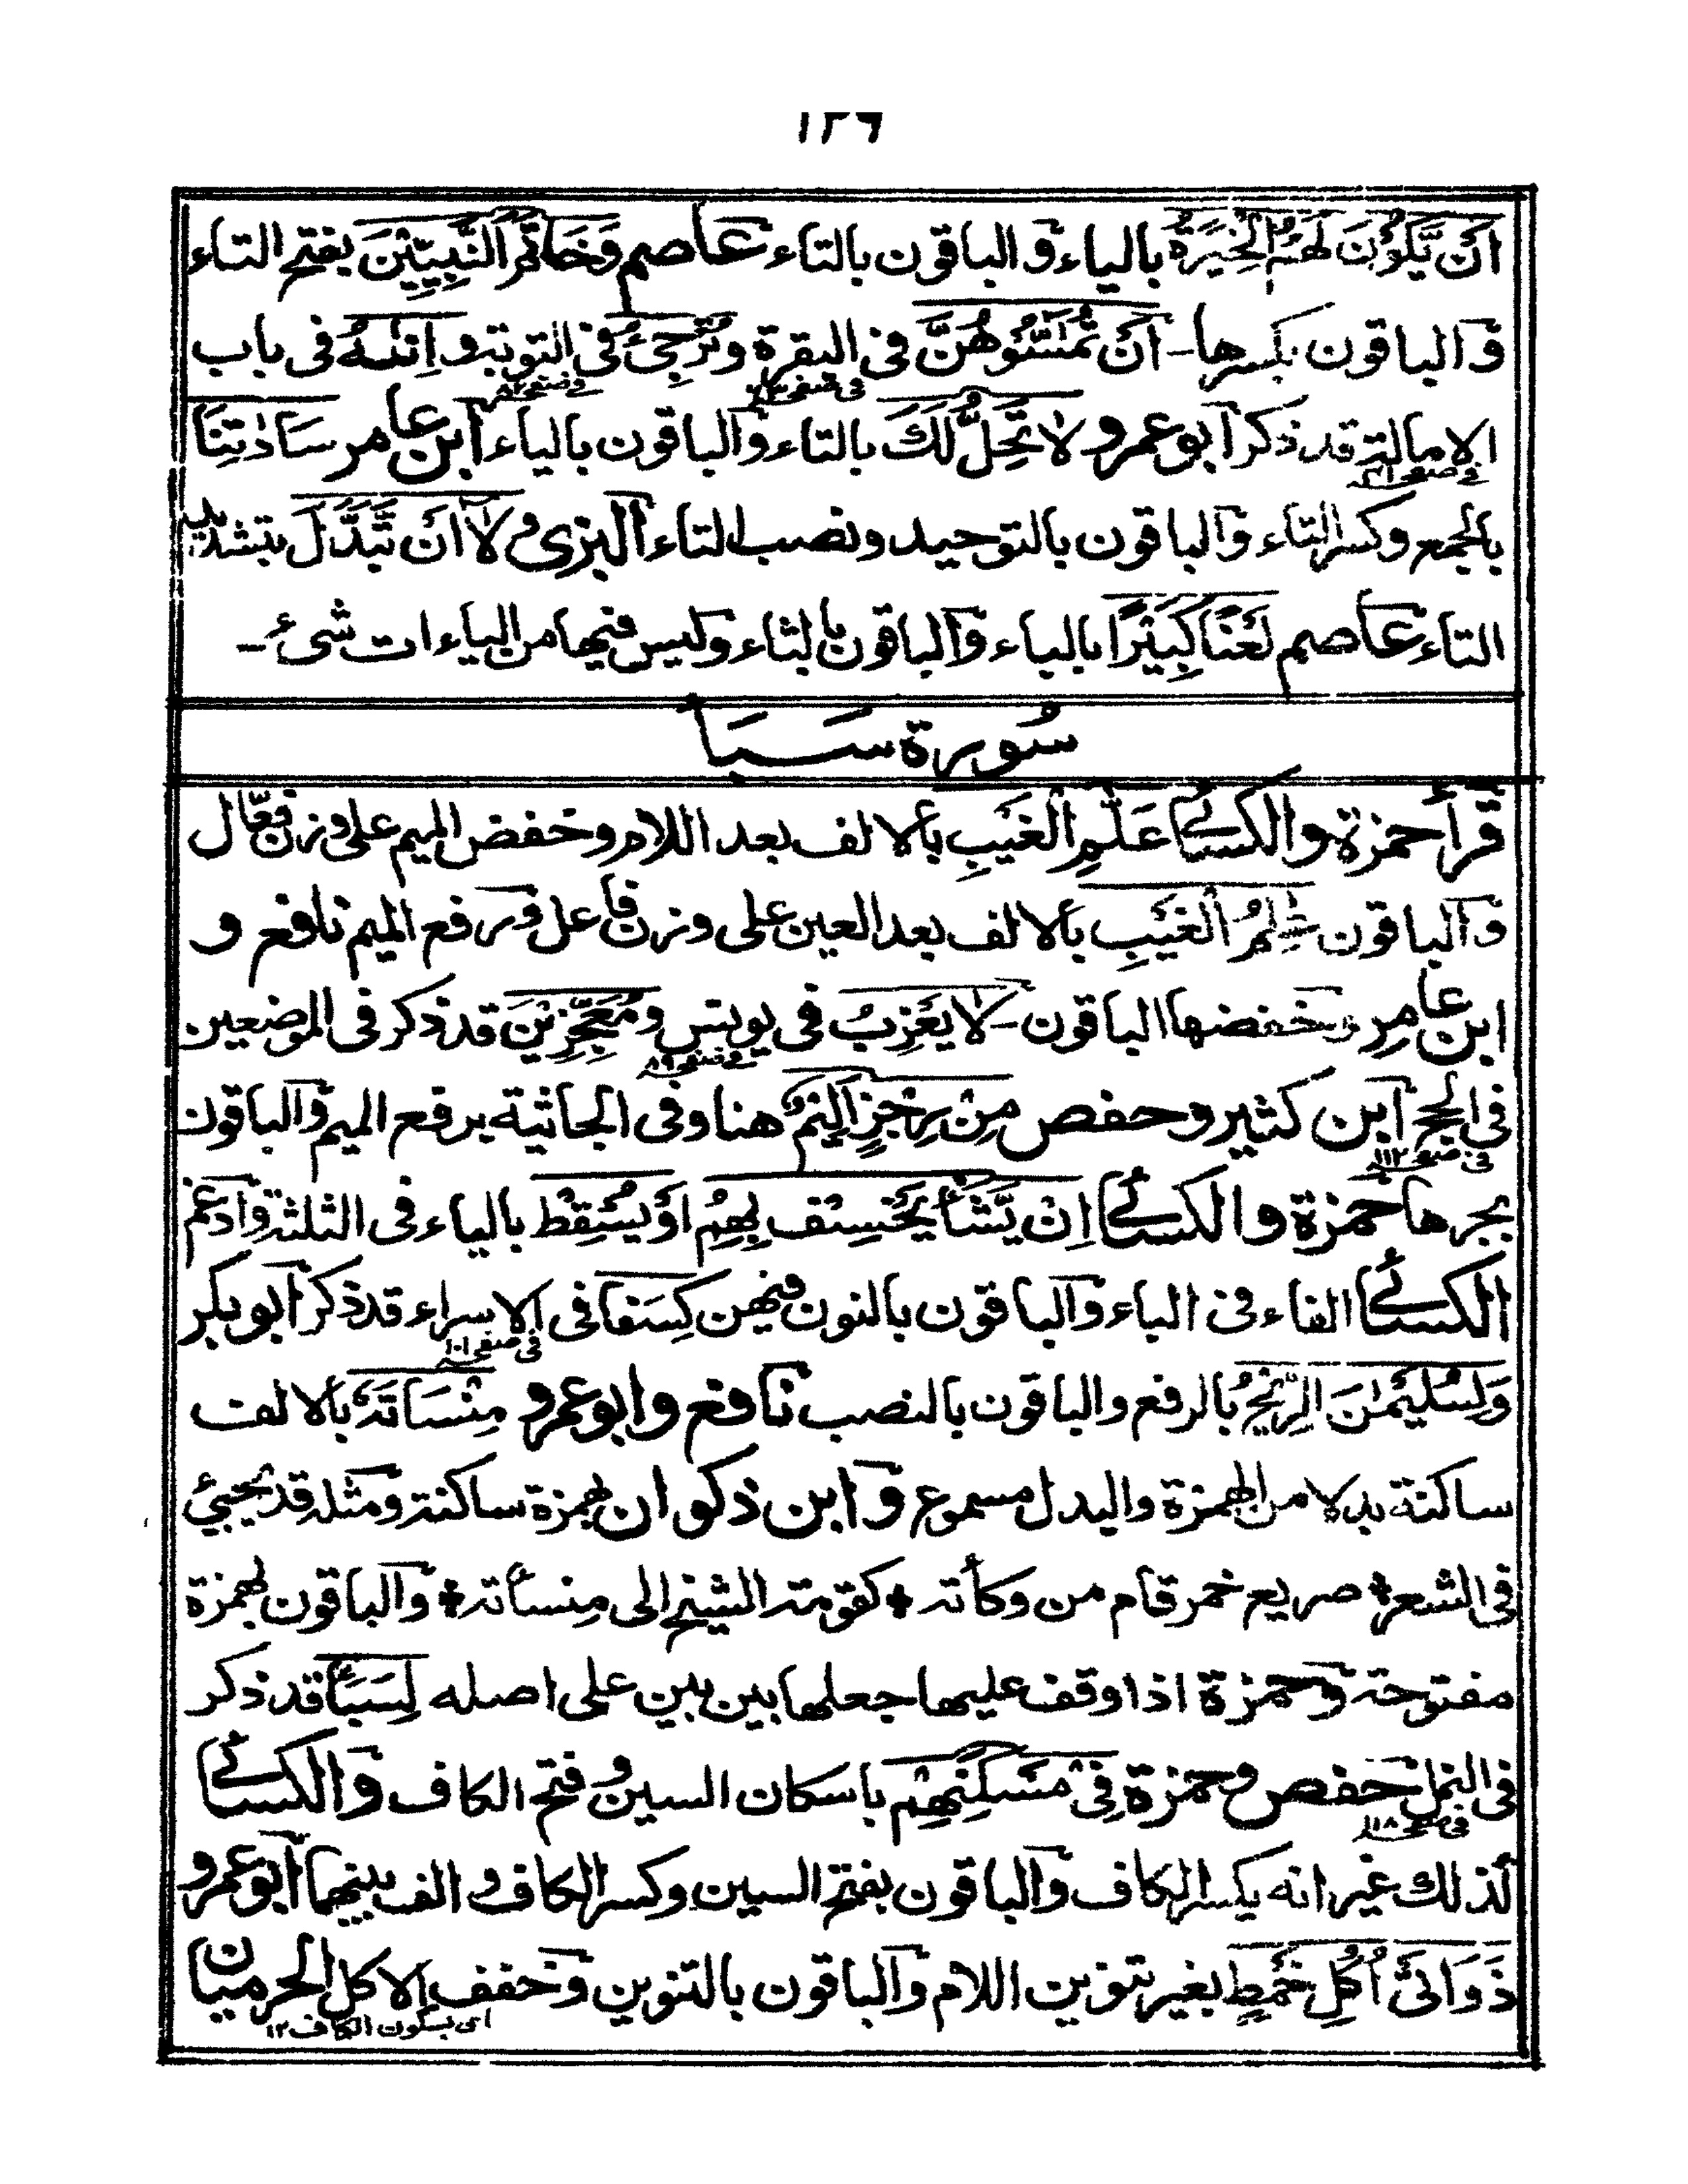 ١٢٦
اَنْ يَّكُوْنَ لَهُمُ الْخِيَرَةُ بالياء والباقون بالتاء عاصم وَخَاتَمَ النَّبِيّٖنَ بفتح التاء
والباقون بكسرها - اَنْ تَمَسُّوْهُنَّ فى البقرة وتُرْجِىْ فى التوبة و اِنٰىهُ فى باب
فى صفحه
وفى صفحه ٨٢
الامالة قد ذكر ابو عمرو لا تَحِلُّ لَكَ بالتاء والباقون بالياء ابن عامر سَادٰتِنَا
فى صفحه
بالجمع وكسر التاء والباقون بالتوحيد ونصب التاء البزى وَلَآ اَنْ تَّبَدَّلَ بتشديد
التاء عاصم لَعْنًا كَبِيْرًا بالباء والباقون بالثاء وليس فيها من الياءات شىء -
سُورة سَبَأ
قرأ حمزة والكسائى عَلّٰمِ الْغَيْبِ بالالف بعد اللام وخفض الميم على وزن فعّال
والباقون عٰلِمُ الْغَيْبِ بالالف بعد العين على وزن فاعل ورفع الميم نافع و
ابن عامر وخفضها الباقون - لَا يَعْزِبُ فى يونس ومُعَجِّزِيْنَ قد ذكر فى الموضعين
وفى صفحه ٨٩
فى الحج ابن كثير وحفص مِنْ رِّجْزٍ اَلِيْمٌ هنا وفى الجاثية برفع الميم والباقون
فى صفحه ١١٢
بجرها حمزة والكسائى اِنْ يَّشَأْ يَخْسِفْ بِهِمُ اَوْ يُسْقِطْ بالياء فى الثلثة وادغم
الكسائى الفاء فى الباء والباقون بالنون فيهن كِسَفًا فى الاسراء قد ذكر ابو بكر
فى صفحه ١٠١
وَلِسُلَيْمٰنَ الرِّيْحُ بالرفع والباقون بالنصب نافع وابو عمرو مِنْسَاتَهٗ بالالف
ساكنة بدلا من الهمزة والبدل مسموع وابن ذكوان بهمزة ساكنة ومثله قد يجيئ
فى الشعر * صريع خمر قام من وكأته * كقومة الشيخ الى منسأته * والباقون بهمزة
مفتوحة وحمزة اذا وقف عليها جعلها بين بين على اصله لِسَبَأٍ قد ذكر
فى النمل حفص وحمزة فِىْ مَسْكَنِهِمْ باسكان السين وفتح الكاف والكسائى
فى صفحه ١١٨
كذلك غير انه يكسر الكاف والباقون بفتح السين وكسر الكاف والف بينهما ابو عمرو
ذَوَاتَىْ اُكُلِ خَمْطٍ بغير تنوين اللام والباقون بالتنوين وخفف الاكل الحرميان
اى بسكون الكاف ١٢